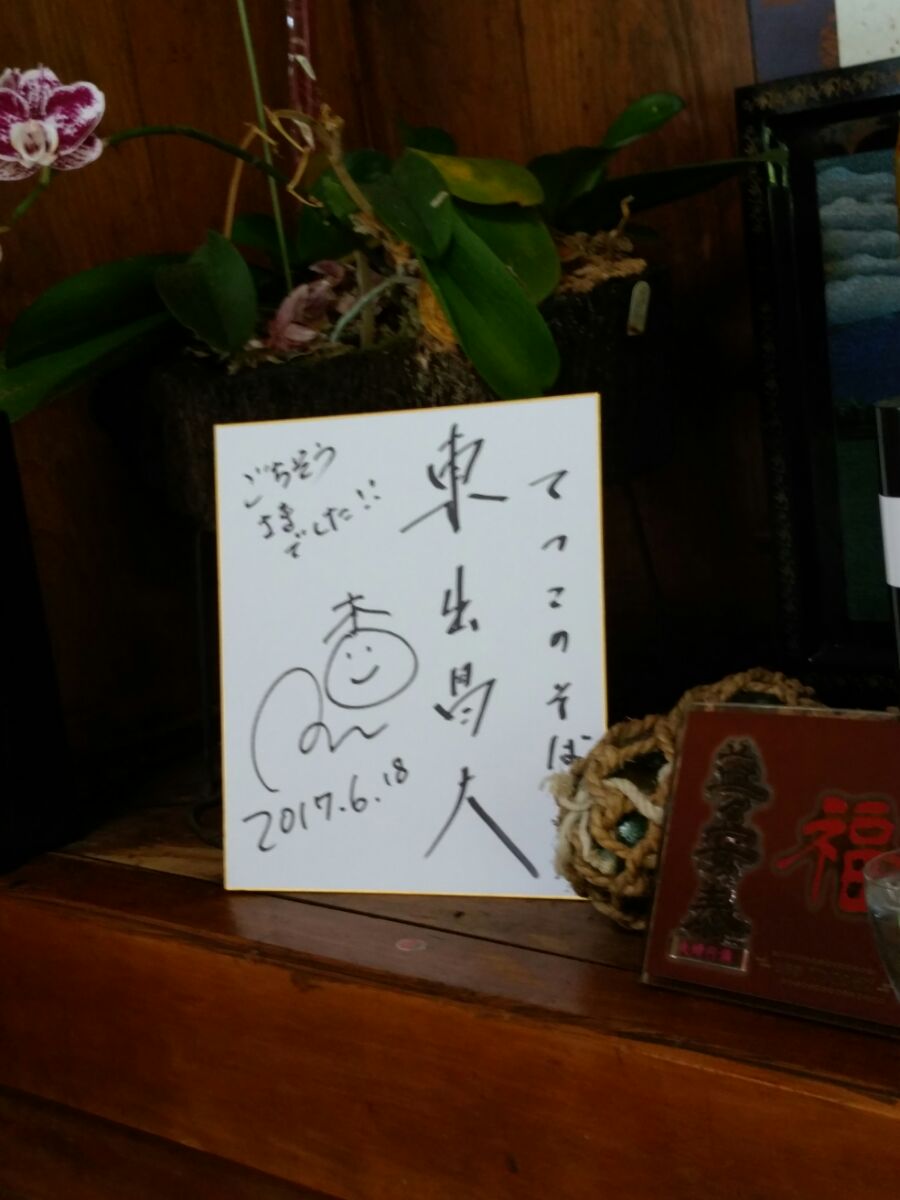 てっこのそば
東出昌大
ごちそう
さま
でした!!
杏
2017.6.18
福